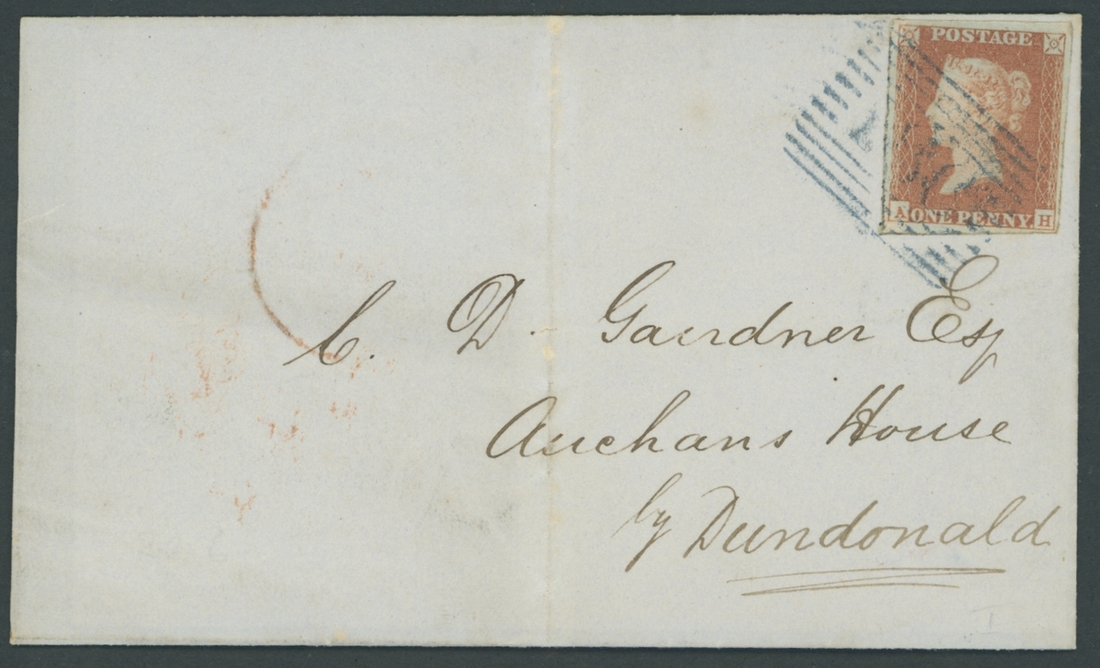 POSTAGE
A ONE PENNY H
C. D. Gairdner Esq
Auchans House
by Dundonald